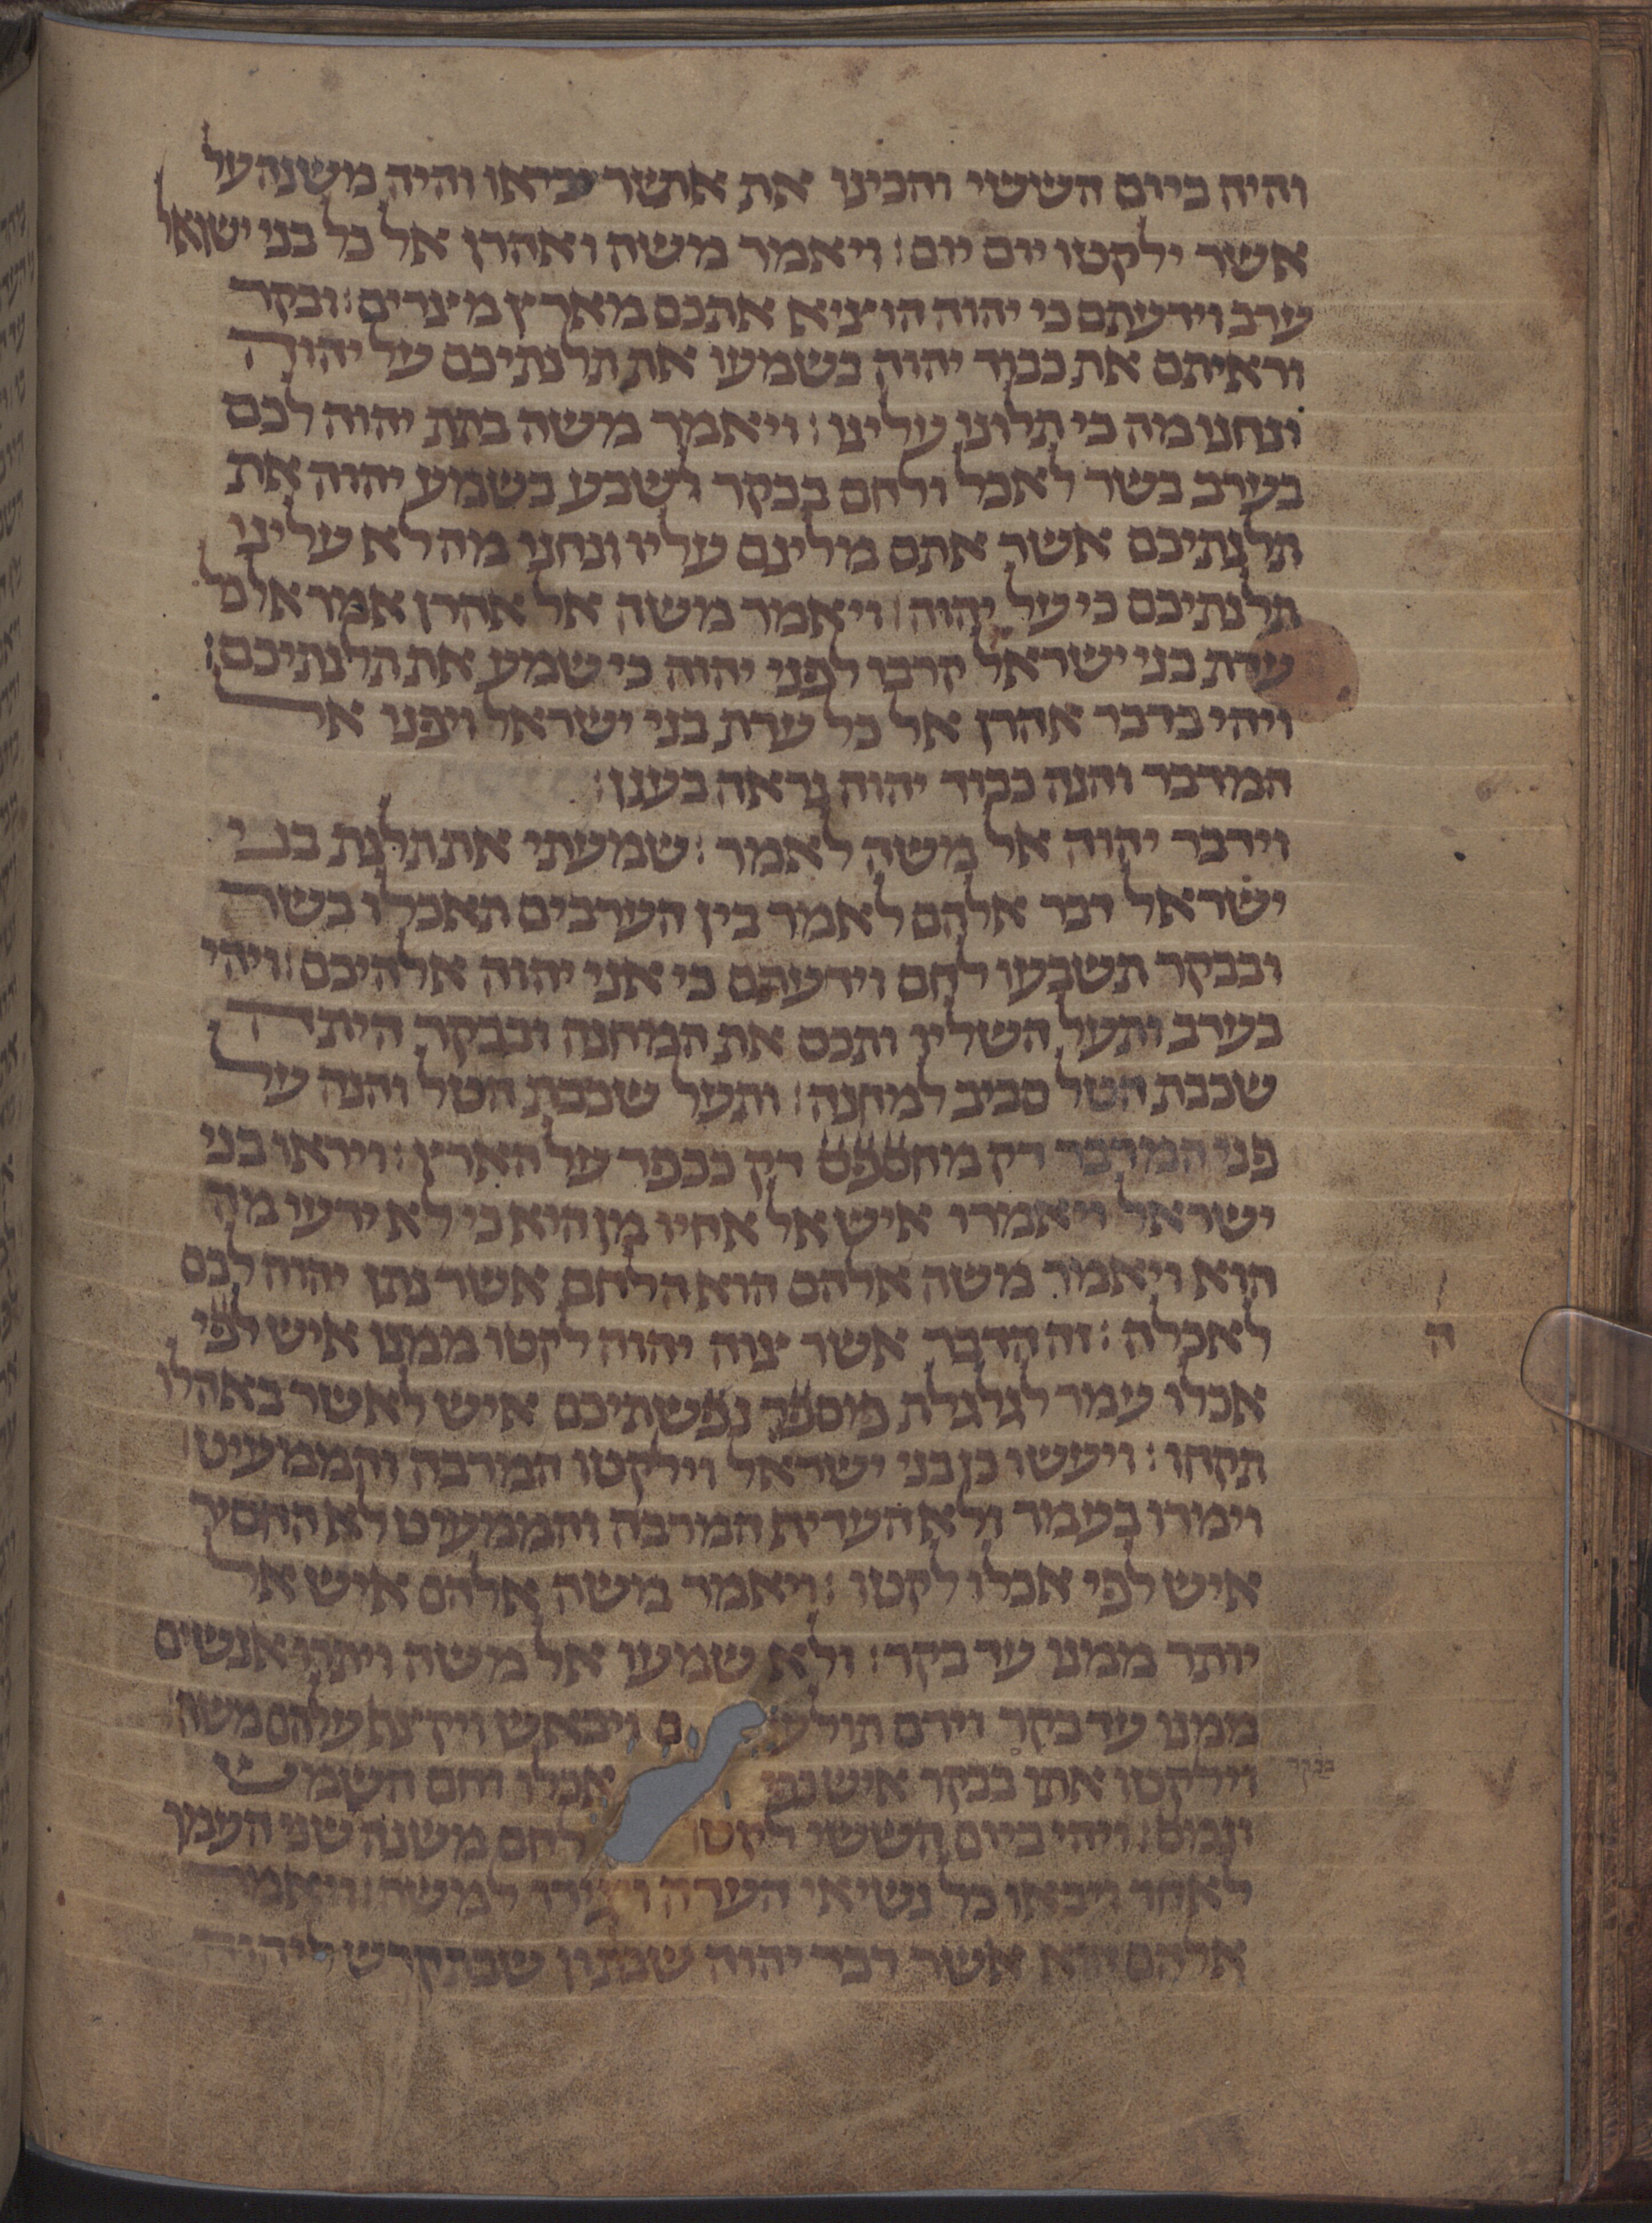 והיה ביום הששי והכינו את אשר יביאו והיה משנה על
אשר ילקטו יום יום׃ ויאמר משה ואהרן אל כל בני ישראל
ערב וידעתם כי יהוה הוציא אתכם מארץ מצרים׃ ובקר
וראיתם את כבוד יהוה בשמעו את תלנתיכם על יהוה
ונחנו מה כי תלונו עלינו׃ ויאמר משה בתת יהוה לכם
בערב בשר לאכל ולחם בבקר לשבע בשמע יהוה את
תלנתיכם אשר אתם מלינם עליו ונחנו מה לא עלינו
תלנתיכם כי על יהוה׃ ויאמר משה אל אהרן אמר אל כל
עדת בני ישראל קרבו לפני יהוה כי שמע את תלנתיכם׃
ויהי כדבר אהרן אל כל עדת בני ישראל ויפנו אל
המדבר והנה כבוד יהוה נראה בענן׃
וידבר יהוה אל משה לאמר׃ שמעתי את תלונת בני
ישראל דבר אלהם לאמר בין הערבים תאכלו בשר
ובבקר תשבעו לחם וידעתם כי אני יהוה אלהיכם׃ ויהי
בערב ותעל השליו ותכס את המחנה ובבקר היתה
שכבת הטל סביב למחנה׃ ותעל שכבת הטל והנה על
פני המדבר דק מחספס דק ככפר על הארץ׃ ויראו בני
ישראל ויאמרו איש אל אחיו מן הוא כי לא ידעו מה
הוא ויאמר משה אלהם הוא הלחם אשר נתן יהוה לכם
לאכלה׃ זה הדבר אשר צוה יהוה לקטו ממנו איש לפי
ה
אכלו עמר לגלגלת מספר נפשתיכם איש לאשר באהלו
תקחו׃ ויעשו כן בני ישראל וילקטו המרבה והממעיט׃
וימדו בעמר ולא העדיף המרבה והממעיט לא החסיר
איש לפי אכלו לקטו׃ ויאמר משה אלהם איש אל
יותר ממנו עד בקר׃ ולא שמעו אל משה ויתרו אנשים
ממנו עד בקר וירם תולעים ויבאש ויקצף עלהם משה׃
וילקטו אתו בבקר איש כפי אכלו וחם השמש
בבקר
ונמס׃ ויהי ביום הששי לקטו לחם משנה שני העמר
לאחד ויבאו כל נשיאי העדה ויגידו למשה׃ ויאמר
אלהם הוא אשר דבר יהוה שבתון שבת קדש ליהוה